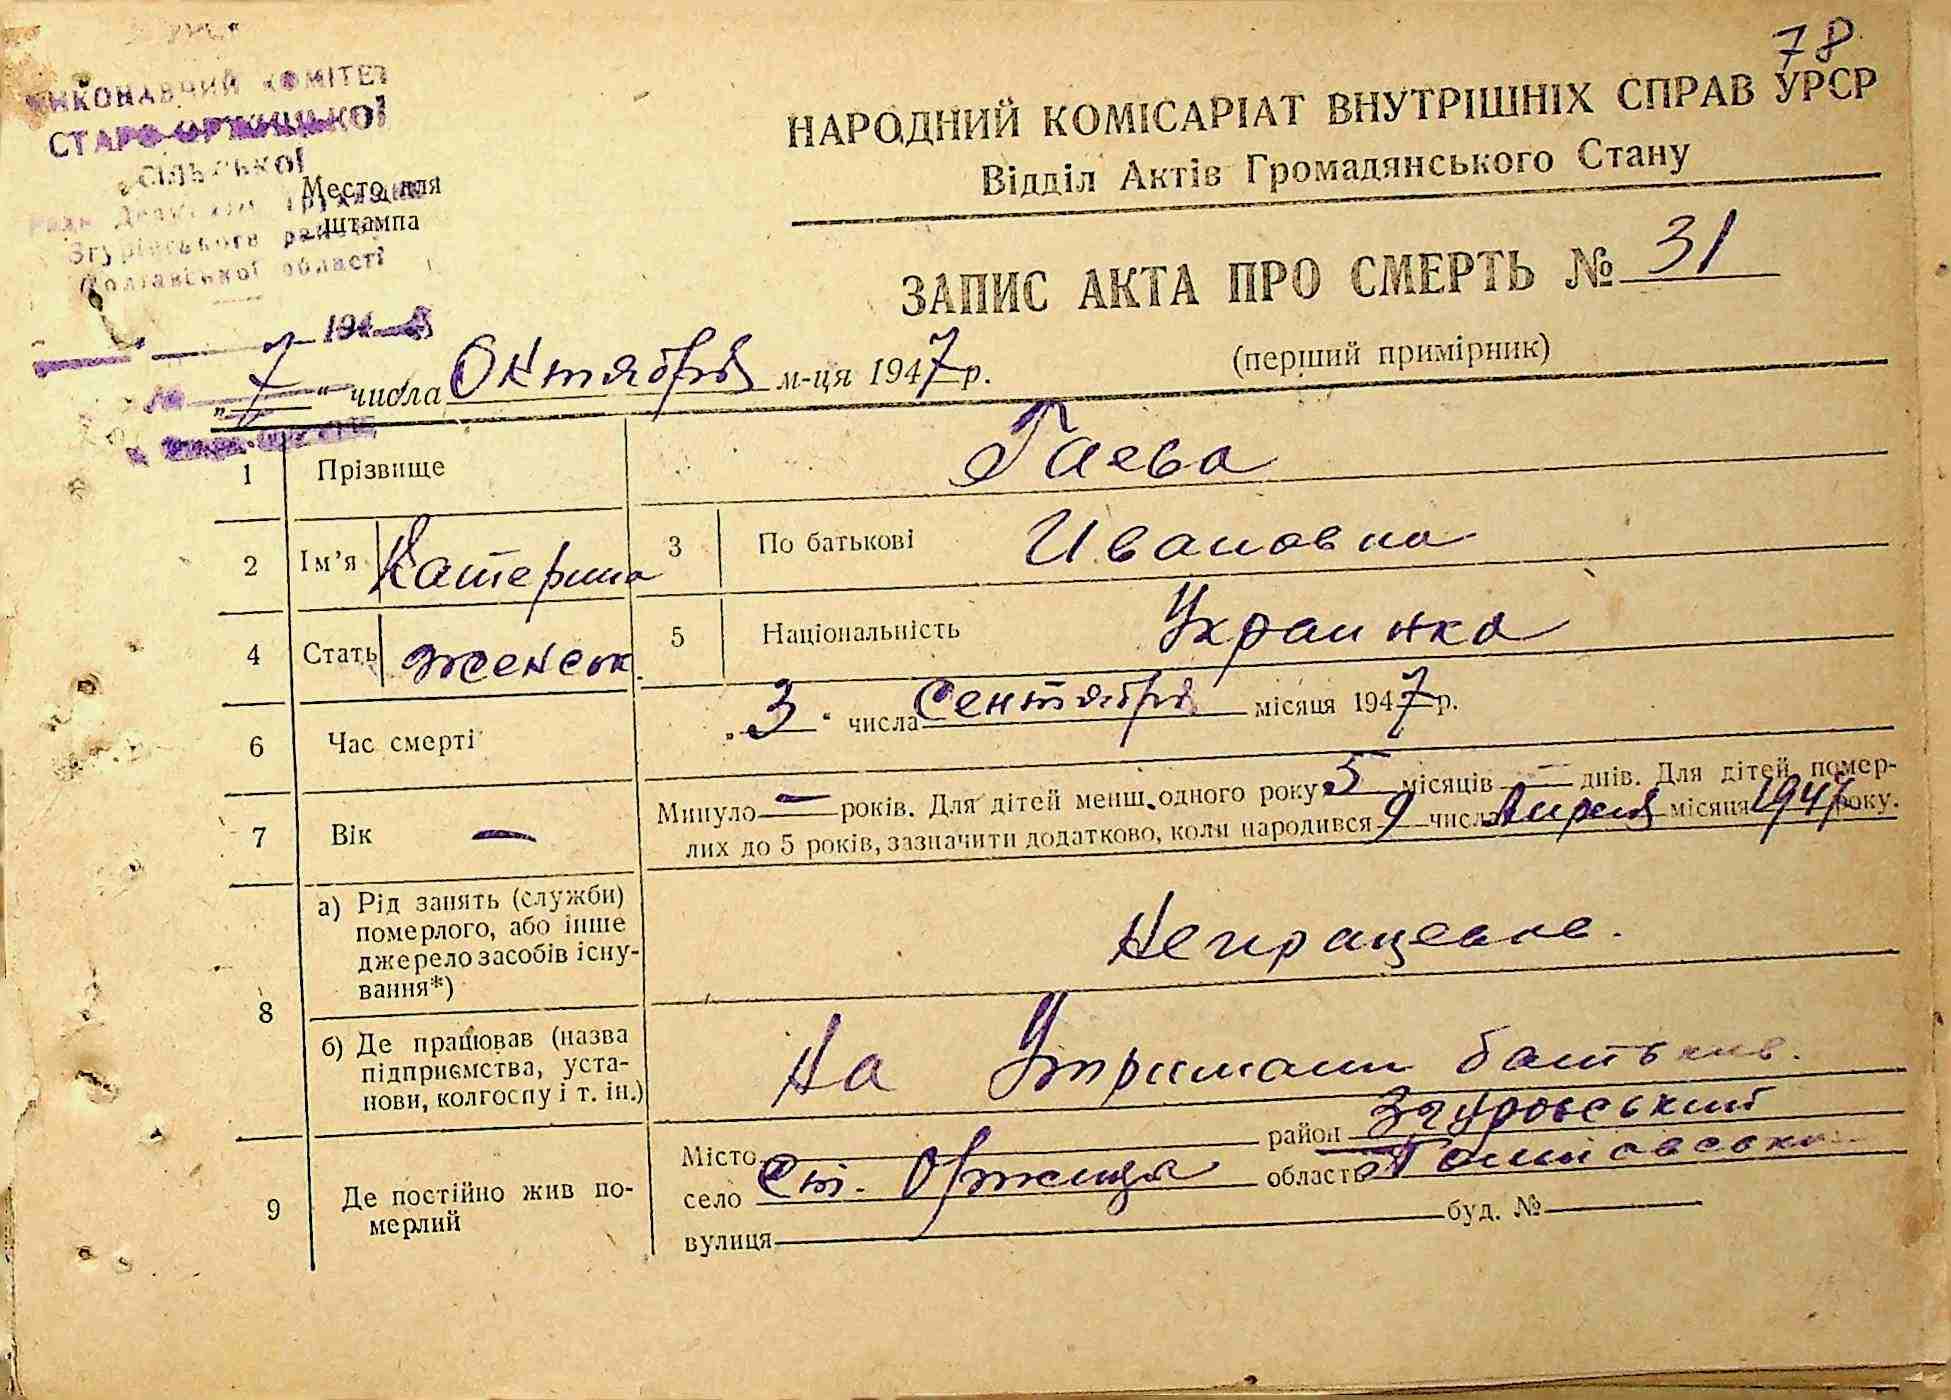 78
ВИКОНАВЧИЙ КОМІТЕТ
СТАРО-ОРЖИЦЬКОЇ
Сільської
Ради
Згурівського району
Полтавської області
Место для
штампа
194
НАРОДНИЙ КОМІСАРІАТ ВНУТРІШНІХ СПРАВ УРСР
Відділ Актів Громадянського Стану
ЗАПИС АКТА ПРО СМЕРТЬ № 31
(перший примірник)
„7“ числа Октября м-ця 1947 р.
1 Прізвище Гаева
2 Ім’я Катерина 3 По батькові Ивановна
4 Стать женськ. 5 Національність Украинка
6 Час смерті „3“ числа Сентября місяця 1947 р.
7 Вік — Минуло — років. Для дітей менш одного року 5 місяців — днів. Для дітей, помер-
лих до 5 років, зазначити додатково, коли народився 9 числа Апреля місяця 1947 року.
8 а) Рід занять (служби)
померлого, або інше
джерело засобів існу-
вання*)
Непрацевне.
б) Де працював (назва
підприємства, уста-
нови, колгоспу і т. ін.)
На Утримани батькив.
9 Де постійно жив по-
мерлий
Місто район Згуровський
село Ст. Оржиця область Полтавська
вулиця буд. №